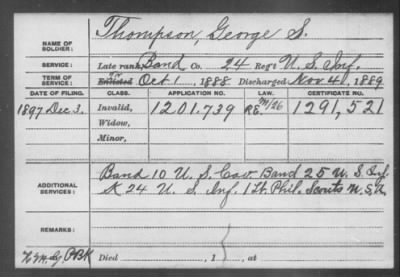 NAME OF SOLDIER: Thompson, George S.
SERVICE: Late rank, Band Co. 24 Reg't U. S. Inf.
TERM OF SERVICE: Enlisted Oct 1, 1888 Discharged Nov 4, 1889
DATE OF FILING. CLASS. APPLICATION NO. LAW. CERTIFICATE NO.
1897 Dec. 3. Invalid, 1.201.739 1,291,521
Widow,
Minor,
ADDITIONAL SERVICES: Band 10 U. S. Cav. Band 25 U. S. Inf.
K 24 U. S. Inf. 1 Lt. Phil. Scouts
REMARKS:
Died , 1 , at